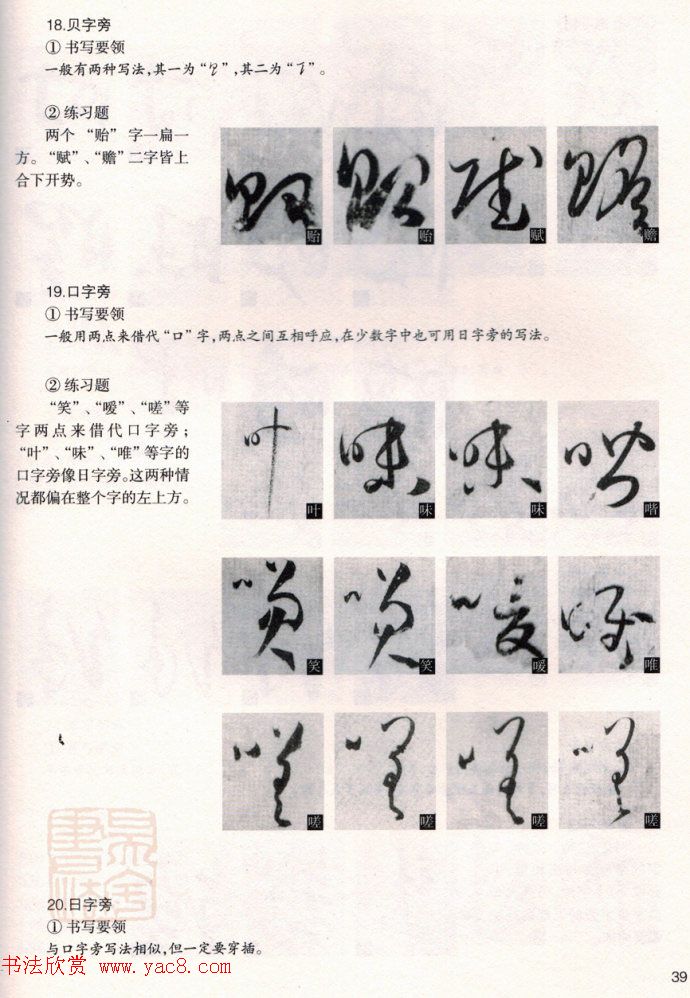 18.贝字旁
① 书写要领
一般有两种写法,其一为“ ”,其二为“ ”。
② 练习题
两个 “贻” 字一扁一
方。“赋”、“赡”二字皆上
合下开势。
贻 贻 赋 赡
19.口字旁
① 书写要领
一般用两点来借代“口”字,两点之间互相呼应,在少数字中也可用日字旁的写法。
② 练习题
“笑”、“嗳”、“嗟”等
字两点来借代口字旁；
“叶”、“味”、“唯”等字的
口字旁像日字旁。这两种情
况都偏在整个字的左上方。
叶 味 味 喈
笑 笑 嗳 唯
嗟 嗟 嗟 嗟
20.日字旁
① 书写要领
与口字旁写法相似,但一定要穿插。
书法欣赏 www.yac8.com
39